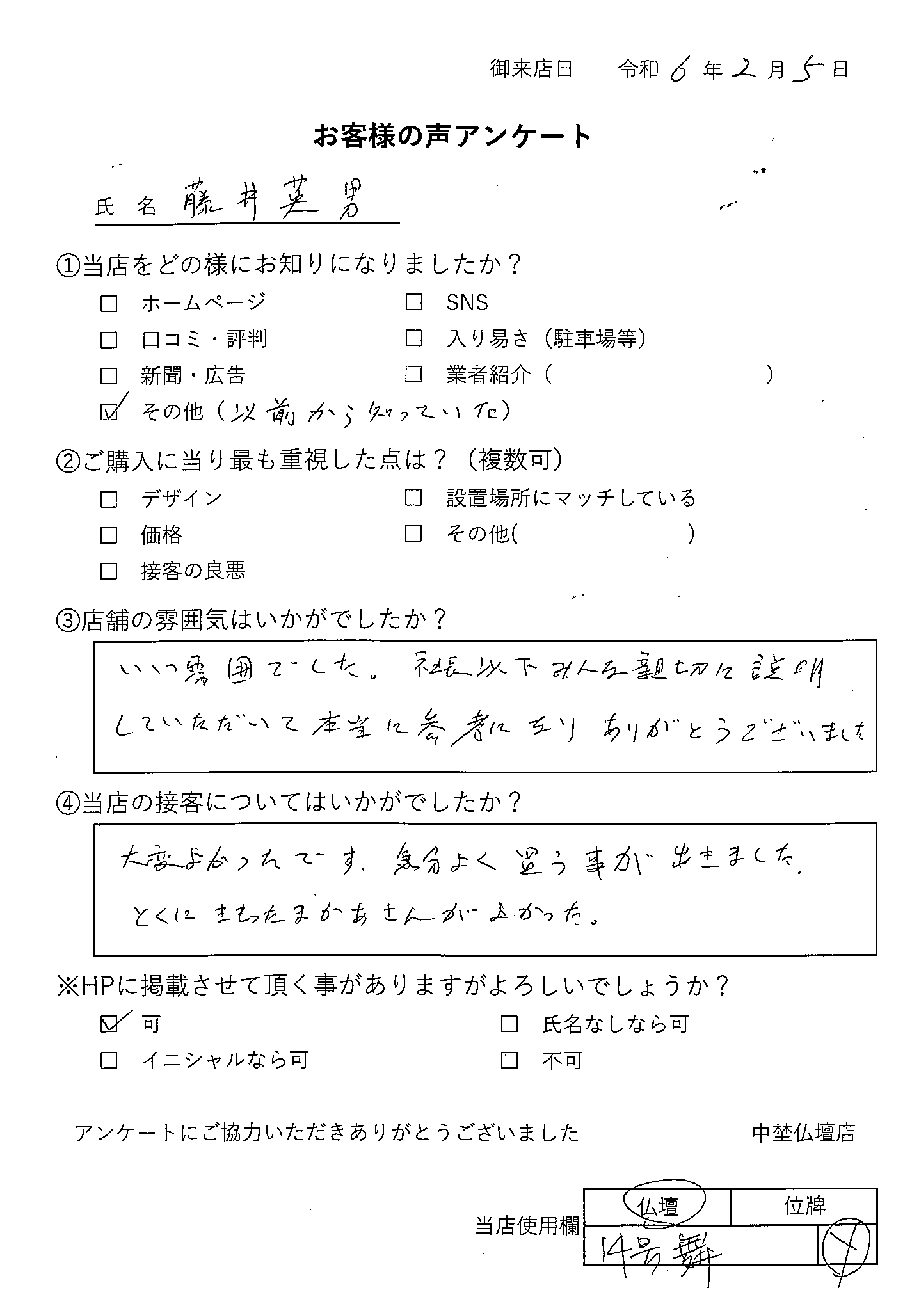 御来店日 令和 6 年 2 月 5 日
お客様の声アンケート
氏 名 藤井英男
①当店をどの様にお知りになりましたか？
□ ホームページ □ SNS
□ 口コミ・評判 □ 入り易さ（駐車場等）
□ 新聞・広告 □ 業者紹介（ ）
☑ その他（以前から知っていた）
②ご購入に当り最も重視した点は？（複数可）
□ デザイン □ 設置場所にマッチしている
□ 価格 □ その他( )
□ 接客の良悪
③店舗の雰囲気はいかがでしたか？
いい雰囲でした。社長以下みんな親切に説明
していただいて本当に参考になり ありがとうございました
④当店の接客についてはいかがでしたか？
大変よかったです、気分よく買う事が出来ました、
とくに さんがよかった。
※HPに掲載させて頂く事がありますがよろしいでしょうか？
☑ 可 □ 氏名なしなら可
□ イニシャルなら可 □ 不可
アンケートにご協力いただきありがとうございました 中埜仏壇店
当店使用欄 仏壇 位牌
14号 舞